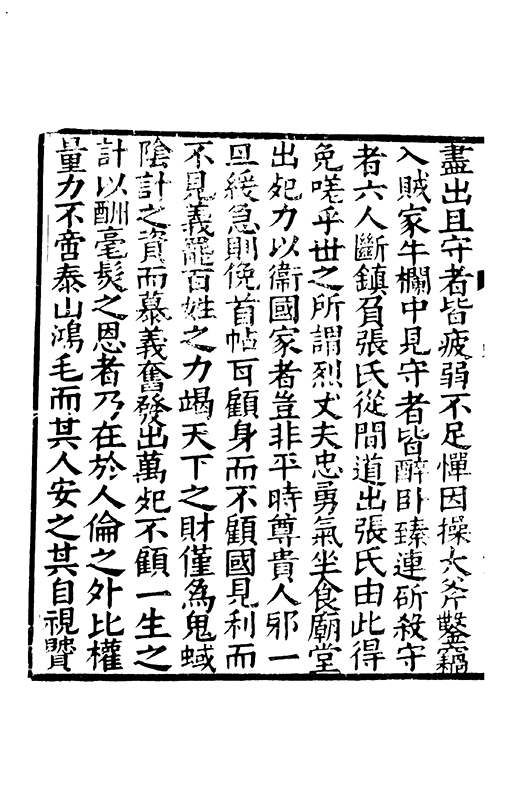 盡出且守者皆疲弱不足憚因操大斧鑿竊
入賊家牛欄中見守者皆醉卧臻連斫殺守
者六人斷鎮負張氏從間道出張氏由此得
免嗟乎世之所謂烈丈夫忠勇氣坐食廟堂
出死力以衞國家者豈非平時尊貴人邪一
旦緩急則俛首帖耳顧身而不顧國見利而
不見義罷百姓之力竭天下之財僅為鬼蜮
陰計之資而慕義奮發出萬死不顧一生之
計以酬毫髮之恩者乃在於人倫之外比權
量力不啻泰山鴻毛而其人安之其自視贒